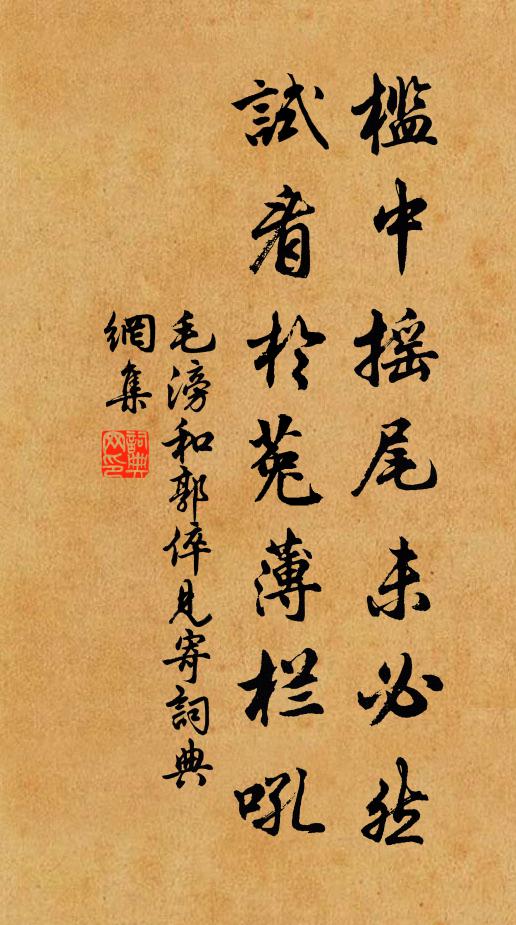 檻中摇尾未必然
試看於菟薄栏吼
毛滂和郭倅見寄詞典
網集
詞典
网印